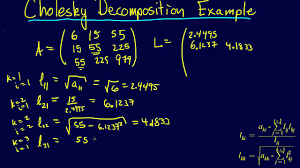 Cholesky Decomposition Example
A = ( 6 15 55
15 55 225
55 225 979 )
L = ( 2.4495
6.1237 4.1833 )
k=1 i=1 l₁₁ = √a₁₁ = √6 = 2.4495
k=2 i=1 l₂₁ = 15/2.4495 = 6.1237
k=2 i=2 l₂₂ = √(55 - 6.1237²) = 4.1833
k=3 l₃₁ = 55